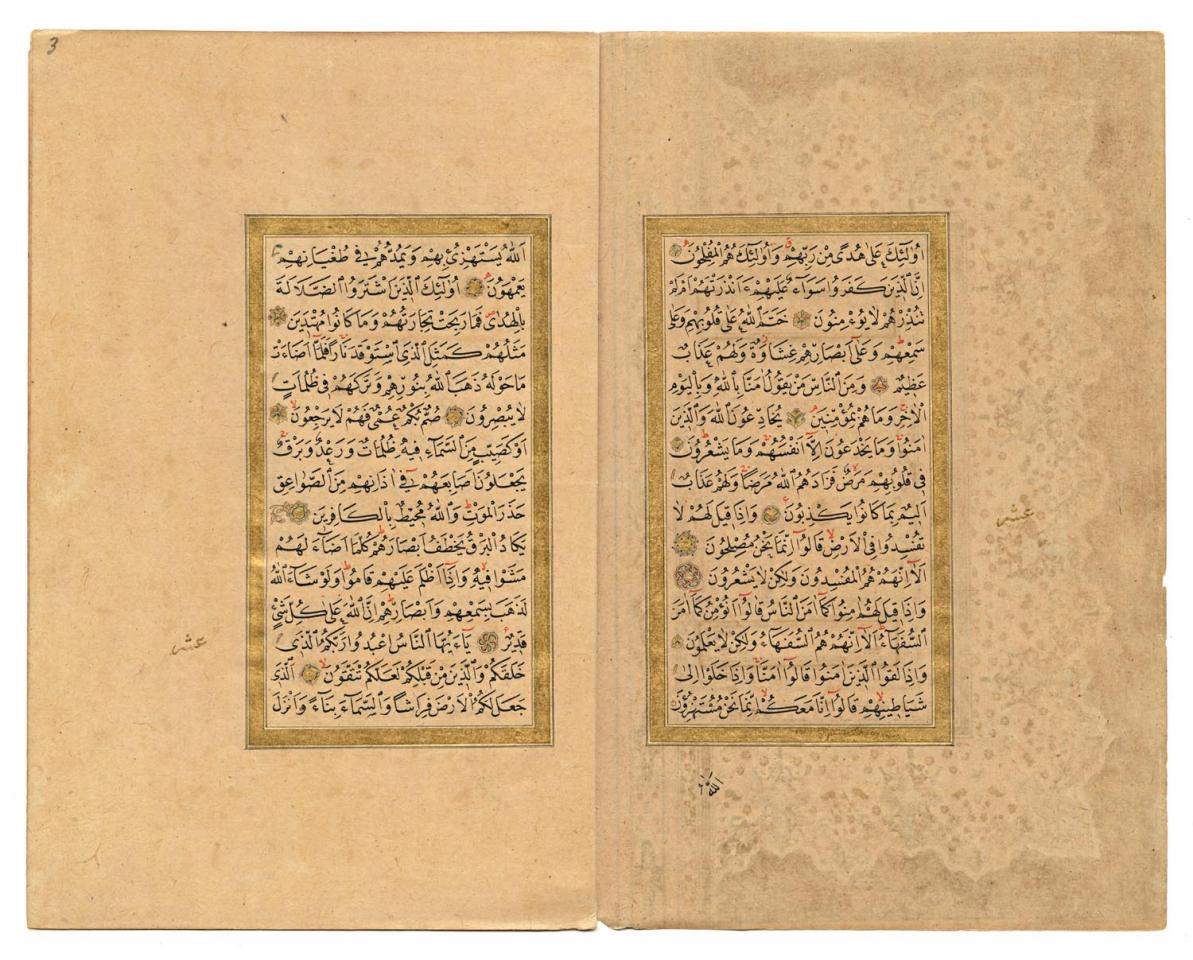 اُولٰٓئِكَ عَلٰى هُدًى مِنْ رَبِّهِمْ وَاُولٰٓئِكَ هُمُ الْمُفْلِحُونَ
اِنَّ الَّذِينَ كَفَرُوا سَوَآءٌ عَلَيْهِمْ ءَاَنْذَرْتَهُمْ اَمْ لَمْ
تُنْذِرْهُمْ لَا يُؤْمِنُونَ خَتَمَ اللّٰهُ عَلٰى قُلُوبِهِمْ وَعَلٰى
سَمْعِهِمْ وَعَلٰٓى اَبْصَارِهِمْ غِشَاوَةٌ وَلَهُمْ عَذَابٌ
عَظِيمٌ وَمِنَ النَّاسِ مَنْ يَقُولُ اٰمَنَّا بِاللّٰهِ وَبِالْيَوْمِ
الْاٰخِرِ وَمَا هُمْ بِمُؤْمِنِينَ يُخَادِعُونَ اللّٰهَ وَالَّذِينَ
اٰمَنُوا وَمَا يَخْدَعُونَ اِلَّٓا اَنْفُسَهُمْ وَمَا يَشْعُرُونَ
فِي قُلُوبِهِمْ مَرَضٌ فَزَادَهُمُ اللّٰهُ مَرَضًا وَلَهُمْ عَذَابٌ
اَلِيمٌ بِمَا كَانُوا يَكْذِبُونَ وَاِذَا قِيلَ لَهُمْ لَا
تُفْسِدُوا فِي الْاَرْضِ قَالُٓوا اِنَّمَا نَحْنُ مُصْلِحُونَ
اَلَٓا اِنَّهُمْ هُمُ الْمُفْسِدُونَ وَلٰكِنْ لَا يَشْعُرُونَ
وَاِذَا قِيلَ لَهُمْ اٰمِنُوا كَمَٓا اٰمَنَ النَّاسُ قَالُٓوا اَنُؤْمِنُ كَمَٓا اٰمَنَ
السُّفَهَآءُ اَلَٓا اِنَّهُمْ هُمُ السُّفَهَآءُ وَلٰكِنْ لَا يَعْلَمُونَ
وَاِذَا لَقُوا الَّذِينَ اٰمَنُوا قَالُٓوا اٰمَنَّا وَاِذَا خَلَوْا اِلٰى
شَيَاطِينِهِمْ قَالُٓوا اِنَّا مَعَكُمْ اِنَّمَا نَحْنُ مُسْتَهْزِؤُنَ
عشر
اللّٰه
3
اَللّٰهُ يَسْتَهْزِئُ بِهِمْ وَيَمُدُّهُمْ فِي طُغْيَانِهِمْ
يَعْمَهُونَ اُولٰٓئِكَ الَّذِينَ اشْتَرَوُا الضَّلَالَةَ
بِالْهُدٰى فَمَا رَبِحَتْ تِجَارَتُهُمْ وَمَا كَانُوا مُهْتَدِينَ
مَثَلُهُمْ كَمَثَلِ الَّذِي اسْتَوْقَدَ نَارًا فَلَمَّٓا اَضَآءَتْ
مَا حَوْلَهُ ذَهَبَ اللّٰهُ بِنُورِهِمْ وَتَرَكَهُمْ فِي ظُلُمَاتٍ
لَا يُبْصِرُونَ صُمٌّ بُكْمٌ عُمْيٌ فَهُمْ لَا يَرْجِعُونَ
اَوْ كَصَيِّبٍ مِنَ السَّمَآءِ فِيهِ ظُلُمَاتٌ وَرَعْدٌ وَبَرْقٌ
يَجْعَلُونَ اَصَابِعَهُمْ فِٓي اٰذَانِهِمْ مِنَ الصَّوَاعِقِ
حَذَرَ الْمَوْتِ وَاللّٰهُ مُحِيطٌ بِالْكَافِرِينَ
يَكَادُ الْبَرْقُ يَخْطَفُ اَبْصَارَهُمْ كُلَّمَٓا اَضَآءَ لَهُمْ
مَشَوْا فِيهِ وَاِذَٓا اَظْلَمَ عَلَيْهِمْ قَامُوا وَلَوْ شَآءَ اللّٰهُ
لَذَهَبَ بِسَمْعِهِمْ وَاَبْصَارِهِمْ اِنَّ اللّٰهَ عَلٰى كُلِّ شَيْءٍ
قَدِيرٌ يَآءَيُّهَا النَّاسُ اعْبُدُوا رَبَّكُمُ الَّذِي
خَلَقَكُمْ وَالَّذِينَ مِنْ قَبْلِكُمْ لَعَلَّكُمْ تَتَّقُونَ اَلَّذِي
جَعَلَ لَكُمُ الْاَرْضَ فِرَاشًا وَالسَّمَآءَ بِنَآءً وَاَنْزَلَ
عشر